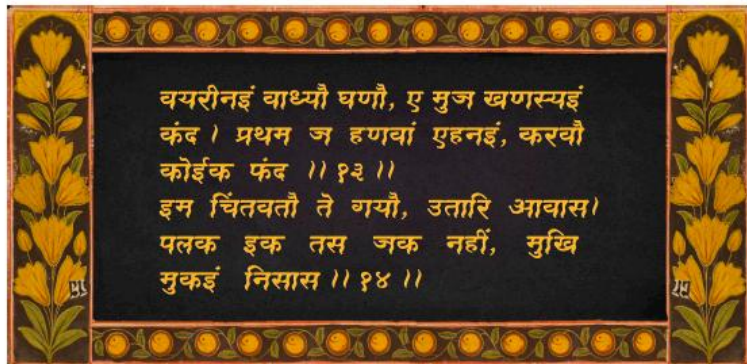 वयरीनइं वाध्यौ घणौ, ए मुज खणस्यइं
कंद । प्रथम ज हणवां एहनइं, करवौ
कोईक फंद ॥ १३ ॥
इम चिंतवतौ ते गयौ, उतारि आवास।
पलक इक तस जक नहीं, मुखि
मुकइं निसास ॥ १४ ॥